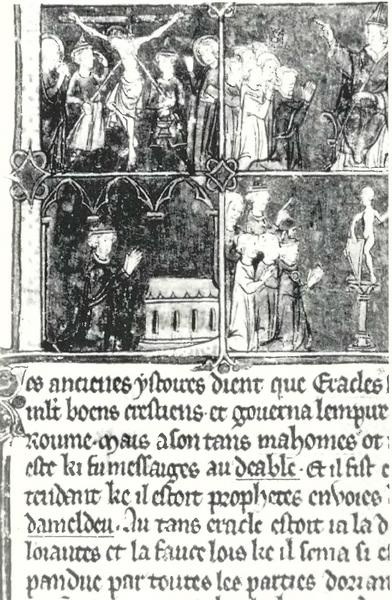 es anciennes ystoires dient que Eracles
mlt boens crestiens et gouerna lempire
roume. mais a son tans mahomes ot
este ki fu messaiges au deable. Et il fist e
tendent ke il estoit prophetes enuoies
dameldeu. Au tans eracle estoit ia la d
loiautes et la fauce lois ke il sema si e
pandue par toutes les parties dorian